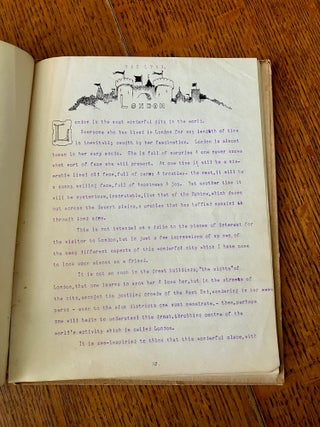 THE LYRE.
LONDON
London is the most wonderful city in the world.
Everyone who has lived in London for any length of time
is inevitably caught by her fascination. London is almost
human in her many moods. She is full of surprises & one never knows
what sort of face she will present. At one time it will be a mis-
erable lined old face, full of cares & troubles. the next, it will be
a sunny, smiling face, full of happiness & joy. Yet another time it
will be mysterious, inscrutable, like that of the Sphinx, which gazes
out across the desert plains, a problem that has baffled mankind
through long ages.
This is not intended as a guide to the places of interest for
the visitor to London, but is just a few impressions of my own, of
the many different aspects of this wonderful city which I have come
to look upon almost as a friend.
It is not so much in the great buildings, "the sights" of
London, that one learns to know her & love her, but in the streets of
the city, amongst the jostling crowds of the West End, wandering in her many
parks - even to the slum districts one must penetrate, - then, perhaps
one will begin to understand this great, throbbing centre of the
world's activity which is called London.
It is awe-inspiring to think that this wonderful place, with